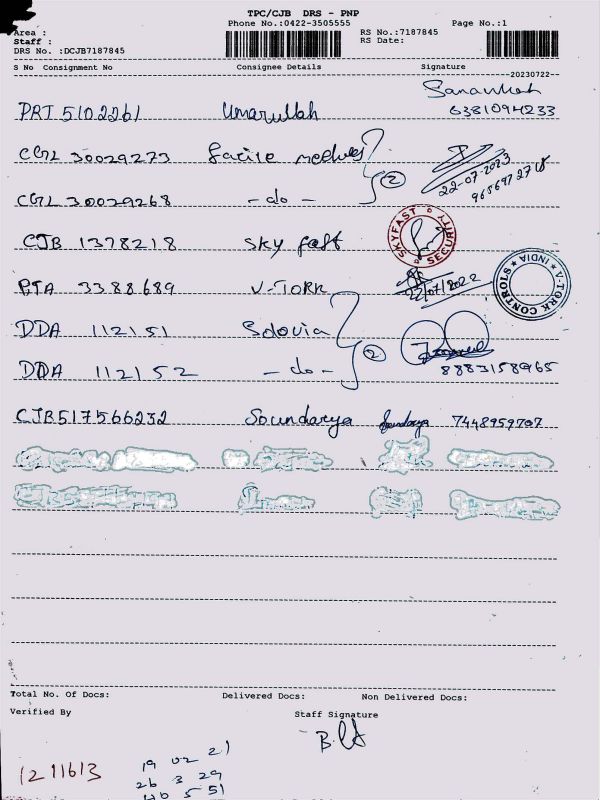 TPC/CJB DRS - PNP
Area : Phone No.:0422-3505555 Page No.:1
Staff : RS No.:7187845
DRS No. :DCJB7187845 RS Date:
S No Consignment No Consignee Details Signature
20230722
PRT 5102261 Umarullah 6381094233
CGL 30029273 2 22-07-2023
CGL 30029268 - do - 9656972718
CJB 1378218 Sky fast SKYFAST SECURITY
PTA 3388689 V-TORK 22/07/2022 V-TORK CONTROLS INDIA
DDA 112151 Sdovia 2
DDA 112152 - do - 8883158965
CJB517566232 Soundarya Soundarya 7448959707
Total No. Of Docs: Delivered Docs: Non Delivered Docs:
Verified By Staff Signature
1211613 19 02 21
26 3 29
40 5 51